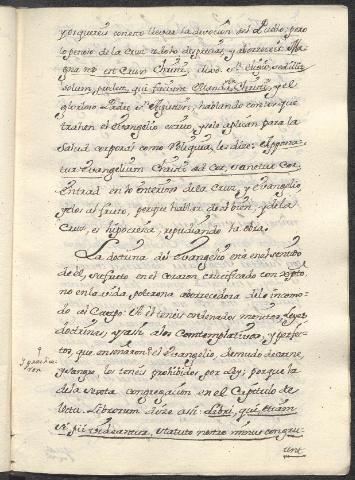 y por quereis con esto llevar la devocion del Pueblo, pero
lo penoso de la Cruz todos desprecias, y aborreceis Ma-
gna res est Crux Christi, dixo Sn. Eligio,
solum, Christi, y el
glorioso Padre Sn. Agustin, hablando con los que
trahen el Evangelio escrito, y solo aplican para la
Salud corporal como Reliquia, les dize: Apponatur
Evangelium Christi ad Cor, sanetur Cor,
Entrad en lo interior de la Cruz, y Evangelio,
y dos al fruto, porque hablar de el bien, y de la
Cruz, es hipocresia, repudiando la obra.
La doctrina del Evangelio no esta en el sentido
de el, su fruto en el corazon crucificado con xpto,
no en la vida, poltrona aborrecedora de lo incomo-
do al Cuerpo: A el teneis ordenados meritos, Leyes
doctrinas; y assi a los Contemplativos, y perfec-
tos, que enseñaron el Evangelio, desnudo de carne,
y sangre, los teneis prohibidos por Ley; porque la
de la Sexta congregacion en el Capitulo de
lecta Librorum dize assi: Libri, qui etiam
si pii videantur, statuto nostro minus congru-
unt